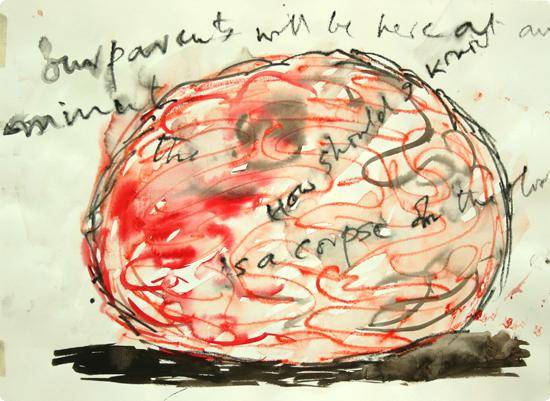 parents will be here at
minut
the How should I know
is a corpse on the